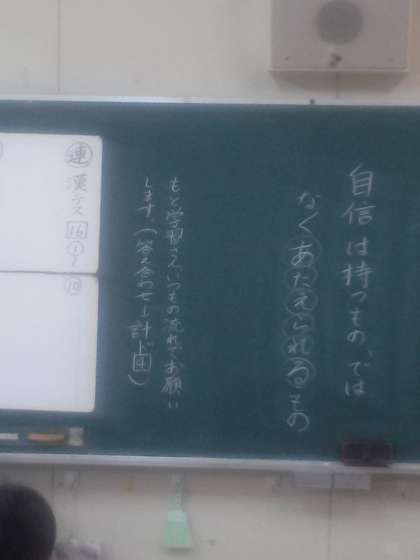 自信は持つもの、では
なくあたえられるもの
もと学習さん、いつもの流れでお願い
します。(答え合わせ→計ド4)
連 漢テス 16 ①〜⑩